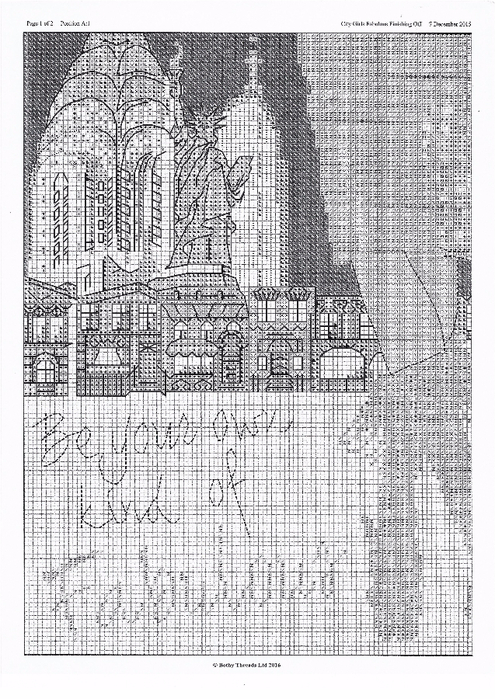 Page 1 of 2 Position A:1
City Girls Fabulous Finishing Off 7 December 2015
Be your own
kind of
© Bothy Threads Ltd 2016